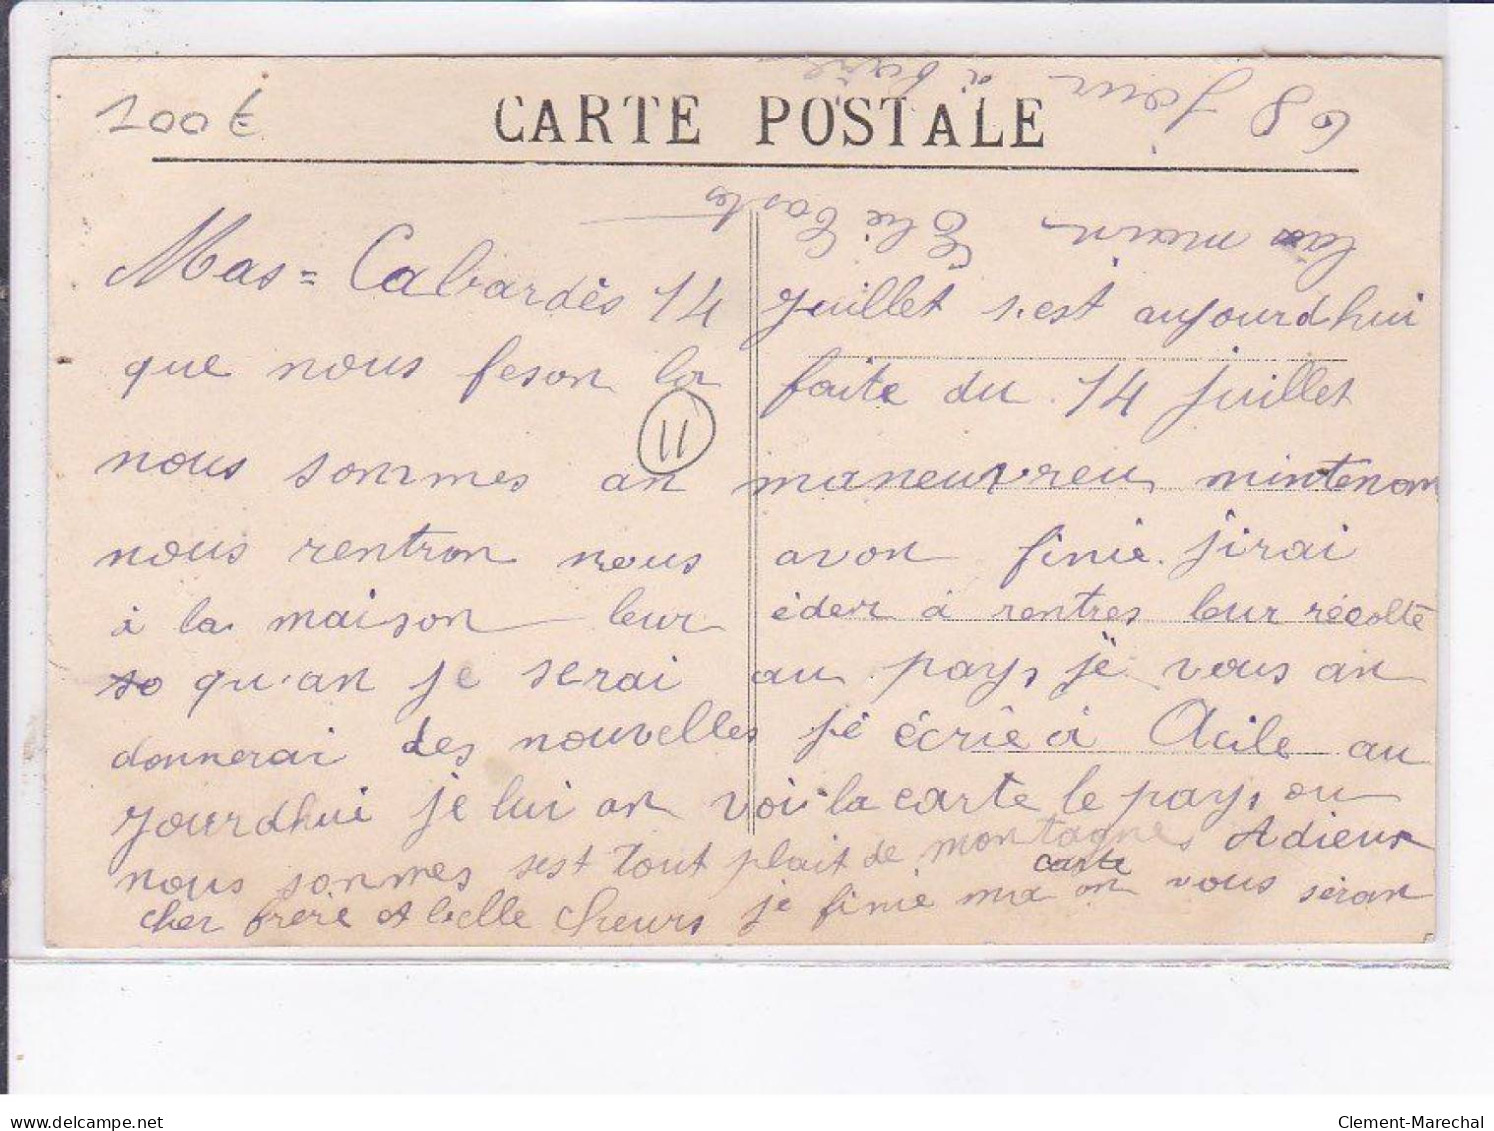 100€
CARTE POSTALE
Mas = Cabardès 14 Juillet s.est aujourdhui
que nous feson la faite du 14 Juillet
11
nous sommes an maneuvreu mintenon
nous rentron nous avon finie jirai
à la maison leur éder à rentres leur récolte
so qu'an je serai au pays je vous an
donnerai des nouvelles je écrie à Acile au
jourdhui je lui an voi la carte le pays ou
nous sommes sest tout plait de montagnes Adieur
cher frere et belle Cheurs je finie ma carte on vous séran
la main Elie Castes
68 jour à faire
delcampe.net
Clement-Marechal